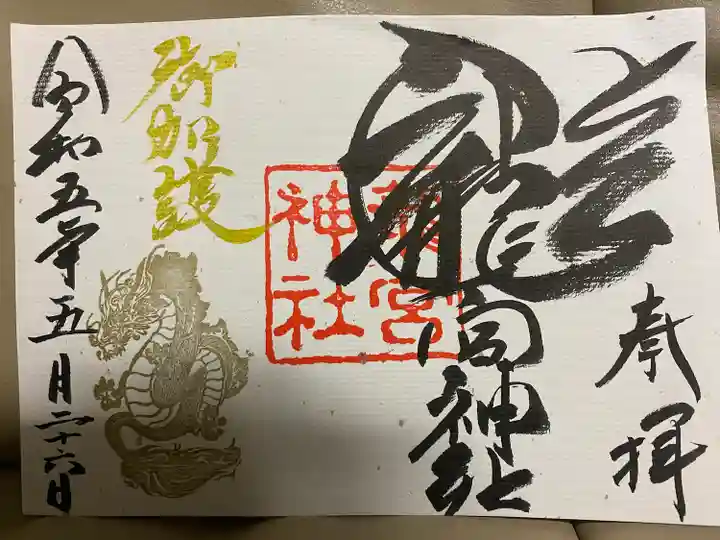 奉拝
龍宮神社
龍宮神社
御加護
令和五年五月二十六日